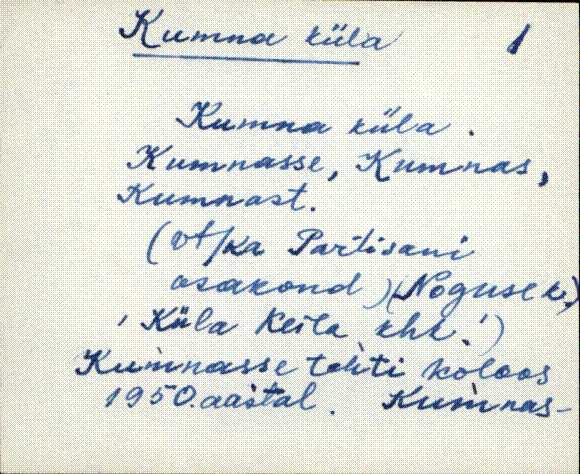 Kumna küla 1
Kumna küla.
Kumnasse, Kumnas,
Kumnast.
(vt/ka Partisani
osakond)(Noguse k.)
'Küla Keila khk.')
Kumnasse tehti koloos
1950. aastal. Kumnas-